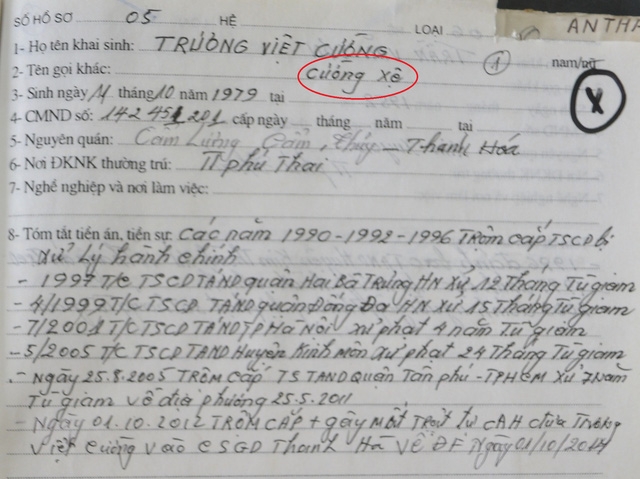 SỐ HỒ SƠ 05 HỆ LOẠI AN THA
1- Họ tên khai sinh: TRƯƠNG VIỆT CƯỜNG nam/nữ
2- Tên gọi khác: Cường Xệ 1
3- Sinh ngày 11 tháng 10 năm 1979 tại X
4- CMND số: 142 451 201 cấp ngày tháng năm tại
5- Nguyên quán: Cẩm Lương Cẩm Thủy - Thanh Hóa
6- Nơi ĐKNK thường trú: TT phú Thai
7- Nghề nghiệp và nơi làm việc:
8- Tóm tắt tiền án, tiền sự: Các năm 1990-1992-1996 Trộm cắp TSCD bị
xử Lý hành chính
- 1997 T/C TSCD TAND quận Hai Bà Trưng HN Xử 12 Tháng Tù giam
- 4/1999 T/C TSCD TAND quận Đống Đa HN Xử 15 Tháng Tù giam
- 7/2001 T/C TSCD TAND TP Hà Nội xử phạt 4 năm Tù giam
- 5/2005 T/C TSCD TAND Huyện Kinh môn xử phạt 24 Tháng Tù giam
- Ngày 25.8.2005 Trộm Cắp TS TAND Quận Tân phú - TPHCM Xử 7 Năm
Tù giam về địa phương 25.5.2011
- Ngày 01.10.2012 TRỘM CẮP + gây Mất Trật tự CAH đưa Trương
Việt Cường vào CSGD Thanh Hà VỀ ĐF Ngày 01/10/2014